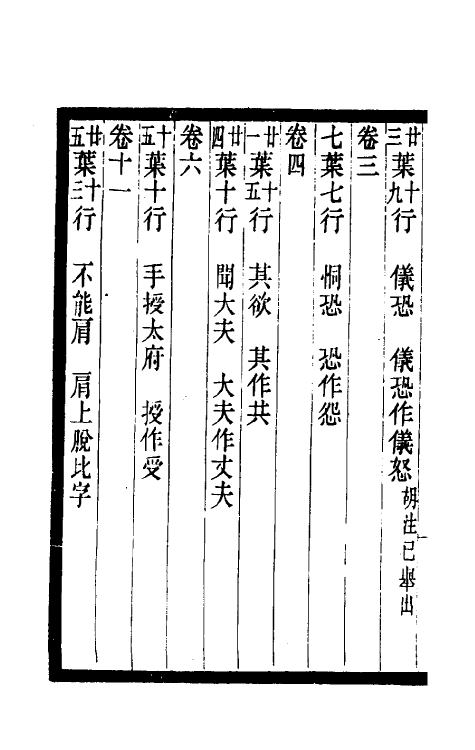 廿三葉十九行　儀恐　儀恐作儀怒胡注已舉出
卷三
七葉七行　恫恐　恐作怨
卷四
廿一葉十五行　其欲　其作共
廿四葉十行　聞大夫　大夫作丈夫
卷六
十五葉十行　手授太府　授作受
卷十一
廿五葉十三行　不能肩　肩上脫比字